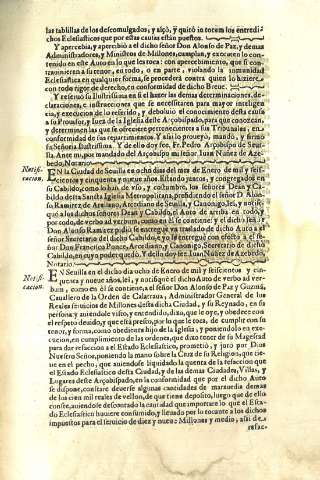 las tablillas de los descomulgados, y alçò, y quitò in totum los entredi-
chos Eclesiasticos que por estas causas están puestos.
Y apercebia, y apercibiò a el dicho señor Don Alonso de Paz, y demas
Administradores, y Ministros de Millones, cumplan, y executen lo con-
tenido en este Auto en lo que les toca: con apercebimiento, que si con-
travinieren a su tenor, en todo, o en parte, violando la immunidad
Eclesiastica en qualquier forma, se procederà contra quien lo hiziere
con todo rigor de derecho, en conformidad de dicho Breve.
Y reservò su Ilustrissima en si el hazer las demas determinaciones, de-
claraciones, e instrucciones que se necessitaren para mayor inteligen
cia, y execucion de lo referido, y debolviò el conocimiento desta causa
a su Provisor, y Juez de la Iglesia deste Arçobispado, para que conozcan,
y determinen las que se ofrecieren pertenecientes a sus Tribunales, en la
conformidad de sus repartimientos. Y assi lo proveyò, mandò, y firmò
su Señoria Ilustrissima. Y de ello doy fee, Fr. Pedro Arçobispo de Sevi-
lla. Ante mi, por mandado del Arçobispo mi señor Iuan Nuñez de Aze-
bedo, Notario.
Notifi-
cacion.
EN la Ciudad de Sevilla en ocho dias del mes de Enero de mil y seis-
cientos y cinquenta y nueve años. Estando juntos, y congregados en
su Cabildo, como lo han de vso, y costumbre, los señores Dean y Ca-
bildo desta Santa Iglesia Metropolitana, presidiendo el señor D. Alon-
so Ramirez de Arellano, Arcediano de Sevilla, y Canonigo, lei, y notifi-
què a los dichos señores Dean y Cabildo, el Auto de arriba en todo, y
por todo, de verbo ad verbum, como en el se contiene; y el dicho señor
D. Alonso Ramirez pidiò se entregue vn traslado de dicho Auto a el
señor Secretario del dicho Cabildo, e yo le entreguè con efecto a el se-
ñor Don Francisco Ponce, Arcediano, y Canonigo, Secretario de dicho
Cabildo, en cuyo poder quedò. Y de ello doy fee. Iuan Nuñez de Azebedo,
Notario.
Notifi-
cacion.
EN Sevilla en el dicho dia ocho de Enero de mil y seiscientos y cin-
quenta y nueve años, leì, y notifiquè el dicho Auto de verbo ad ver-
bum, como en èl se contiene, a el señor Don Alonso de Paz y Guzmã,
Cavallero de la Orden de Calatrava, Administrador General de los
Reales servicios de Millones desta dicha Ciudad, y su Reynado, en su
persona; y aviendole visto, y entendido, dixo, que le oye, y obedece con
el respeto devido, y que està presto, por lo que le toca, de cumplir con su
tenor, y forma, como obediente hijo de la Iglesia; y poniendolo en exe-
cucion, en cumplimiento de las ordenes, que dixo tener de su Magestad
para dar refaccion a el Estado Eclesiastico, prometiò, y jurò por Dios
Nuestro Señor, poniendo la mano sobre la Cruz de su Religion, que tie-
ne en el pecho, que aviendose liquidado la quenta de la refaccion que
el Estado Eclesiastico desta Ciudad, y de las demas Ciudades, Villas, y
Lugares deste Arçobispado, en la conformidad que por el dicho Auto
se dispone, constare deverse algunas cantidades de maravedis demas
de los cien mil reales de vellon, de que tiene deposito, luego que de ello
conste, aviendole desontado la cantidad que importare lo que el Esta-
do Eclesiastico huviere consumido, y llevado por lo tocante a los dichos
impuestos para el servicio de diez y nueve Millones y medio, assi de
refac-